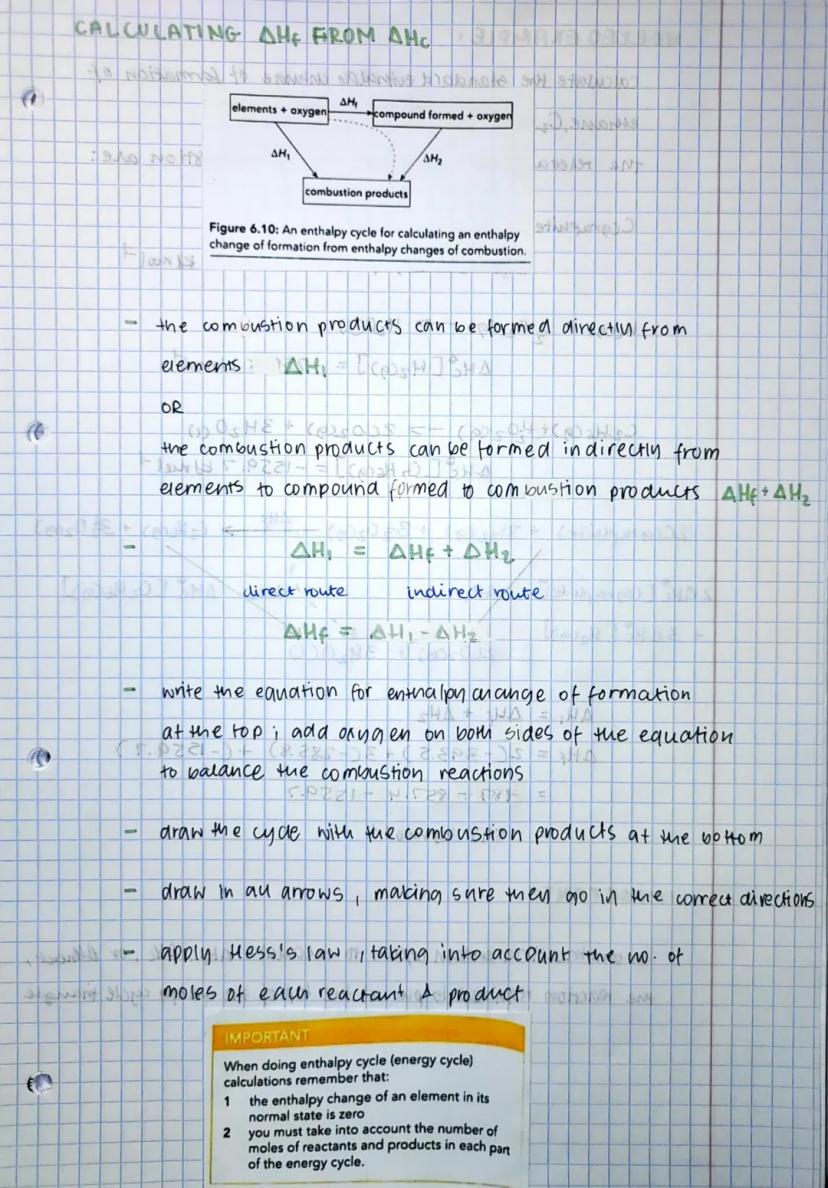 CALCULATING ΔHf FROM ΔHc
elements + oxygen
ΔHf
compound formed + oxygen
ΔH1
ΔH2
combustion products
Figure 6.10: An enthalpy cycle for calculating an enthalpy
change of formation from enthalpy changes of combustion.
- the combustion products can be formed directly from
elements : ΔH1
OR
the combustion products can be formed indirectly from
elements to compound formed to combustion products ΔHf + ΔH2
- ΔH1 = ΔHf + ΔH2
direct route indirect route
ΔHf = ΔH1 - ΔH2
- write the equation for enthalpy change of formation
at the top ; add oxygen on both sides of the equation
to balance the combustion reactions
- draw the cycle with the combustion products at the bottom
- draw in all arrows , making sure they go in the correct directions
- apply Hess's law , taking into account the no. of
moles of each reactant & product
IMPORTANT
When doing enthalpy cycle (energy cycle)
calculations remember that:
1 the enthalpy change of an element in its
normal state is zero
2 you must take into account the number of
moles of reactants and products in each part
of the energy cycle.